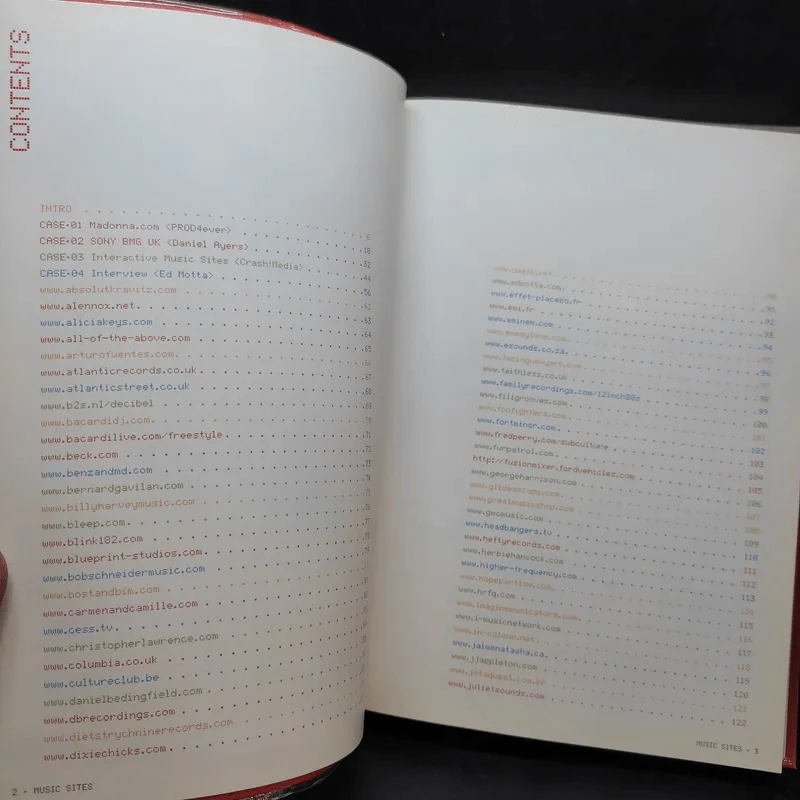 CONTENTS
INTRO 6
CASE·01 Madonna.com <PROD4ever> 18
CASE·02 SONY BMG UK <Daniel Ayers> 32
CASE·03 Interactive Music Sites <Crash!Media> 44
CASE·04 Interview <Ed Motta> 56
www.absolutkravitz.com
www.alennox.net 63
www.aliciakeys.com 64
www.all-of-the-above.com 65
www.arturofuentes.com 66
www.atlanticrecords.co.uk 67
www.atlanticstreet.co.uk 68
www.b2s.nl/decibel 69
www.bacardidj.com 70
www.bacardilive.com/freestyle 71
www.beck.com 72
www.benzandmd.com 73
www.bernardgavilan.com 74
www.billyharveymusic.com 75
www.bleep.com
www.blink182.com 77
www.blueprint-studios.com 78
www.bobschneidermusic.com 79
www.bostandbim.com
www.carmenandcamille.com
www.cess.tv
www.christopherlawrence.com
www.columbia.co.uk
www.cultureclub.be
www.danielbedingfield.com
www.dbrecordings.com
www.dietstrychninerecords.com
www.dixiechicks.com
2 · MUSIC SITES
90
www.edmotta.com 91
www.effet-placebo.fr 92
www.emi.fr 93
www.eminem.com 94
95
www.esounds.co.za 96
www.facingnewyork.com 97
www.faithless.co.uk 98
www.familyrecordings.com/12inch80s 99
www.filigrooves.com 100
www.foofighters.com 101
www.fortminor.com 102
www.fredperry.com/subculture 103
www.furpatrol.com 104
http://fusionmixer.fordvehicles.com 105
www.georgeharrison.com 106
www.glidescope.com 107
www.greatmusicshop.com 108
www.gwcmusic.com 109
www.headbangers.tv 110
www.heftyrecords.com 111
www.herbiehancock.com 112
www.higher-frequency.com 113
www.hopepartlow.com 114
www.hrfq.com 115
116
www.i-musicnetwork.com 117
www.in-colour.net 118
www.jaimenatasha.ca 119
www.jjappleton.com 120
www.jotaquest.com.br 121
www.julietsounds.com 122
MUSIC SITES · 3